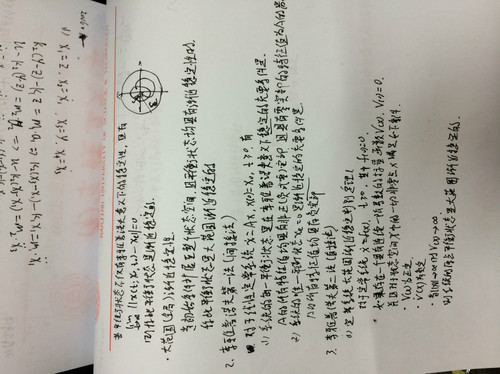 若平衡状态不仅有李雅普诺夫意义下的稳定性，且有
lim ||x(t; x₀, t₀) - xe||=0
则称此平衡状态是渐近稳定的.
·大范围(全局)渐近稳定性.
当初始条件扩展至整个状态空间，且平衡状态均具有渐近稳定性时.
称此平衡状态是大范围渐近稳定的
2、李雅普诺夫第一法(间接法)
对于线性定常系统 ẋ=Ax, x(0)=x₀, t≥0 有
1) 系统的每一平衡状态是在李雅普诺夫意义下稳定的充要条件是.
A的所有特征值均具有非正(负或零)实部 且具有零实部的特征值为A的
2) 系统的唯一平衡状态 xe=0 是渐近稳定的充要条件是.
A的所有特征值均具有负实部
3. 李雅普诺夫第二法(直接法)
1) 定常系统大范围渐近稳定判别定理1
对于定常系统 ẋ=f(x), t≥0, 其中 f(0)=0.
如果存在一个具有连续一阶导数的标量函数V(x), V(0)=0.
并且对于状态空间X中的一切非零点x满足如下条件.
· V(x)为正定.
· V̇(x)为负定
· 当||x||→∞时 V(x)→∞.
则系统的原点平衡状态是大范围渐近稳定的.